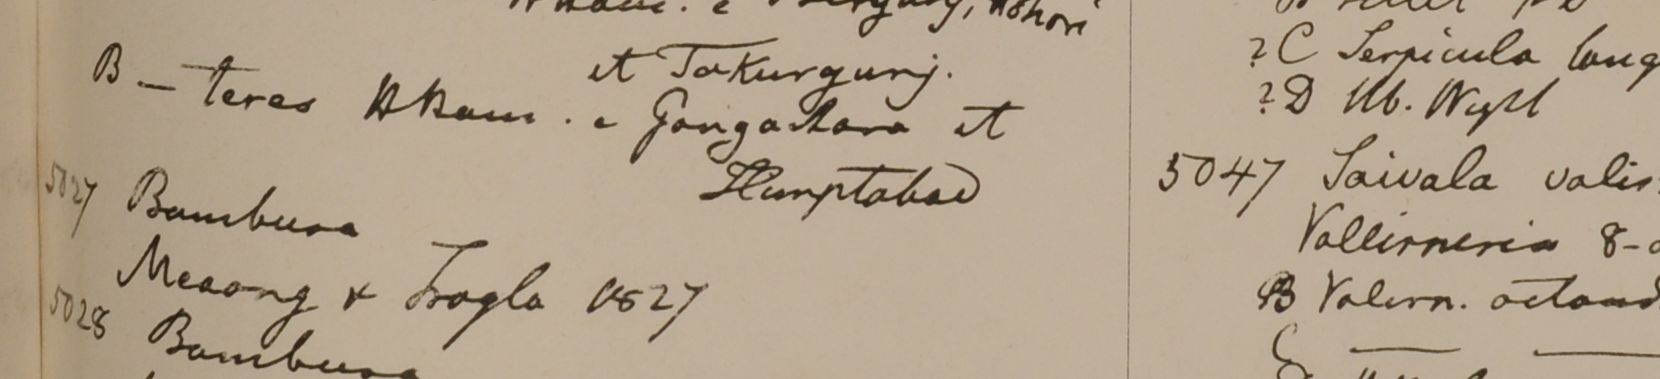 et Takurgunj.
B — teres HHam. e Gongachora et
Hurnptabad
5027 Bambusa
Meaong & Trogla 1827
5028 Bambusa
? C Serpicula long
? D Hb. Wight
5047 Saivala valis
Vallisneria 8-
B Valisn. octand